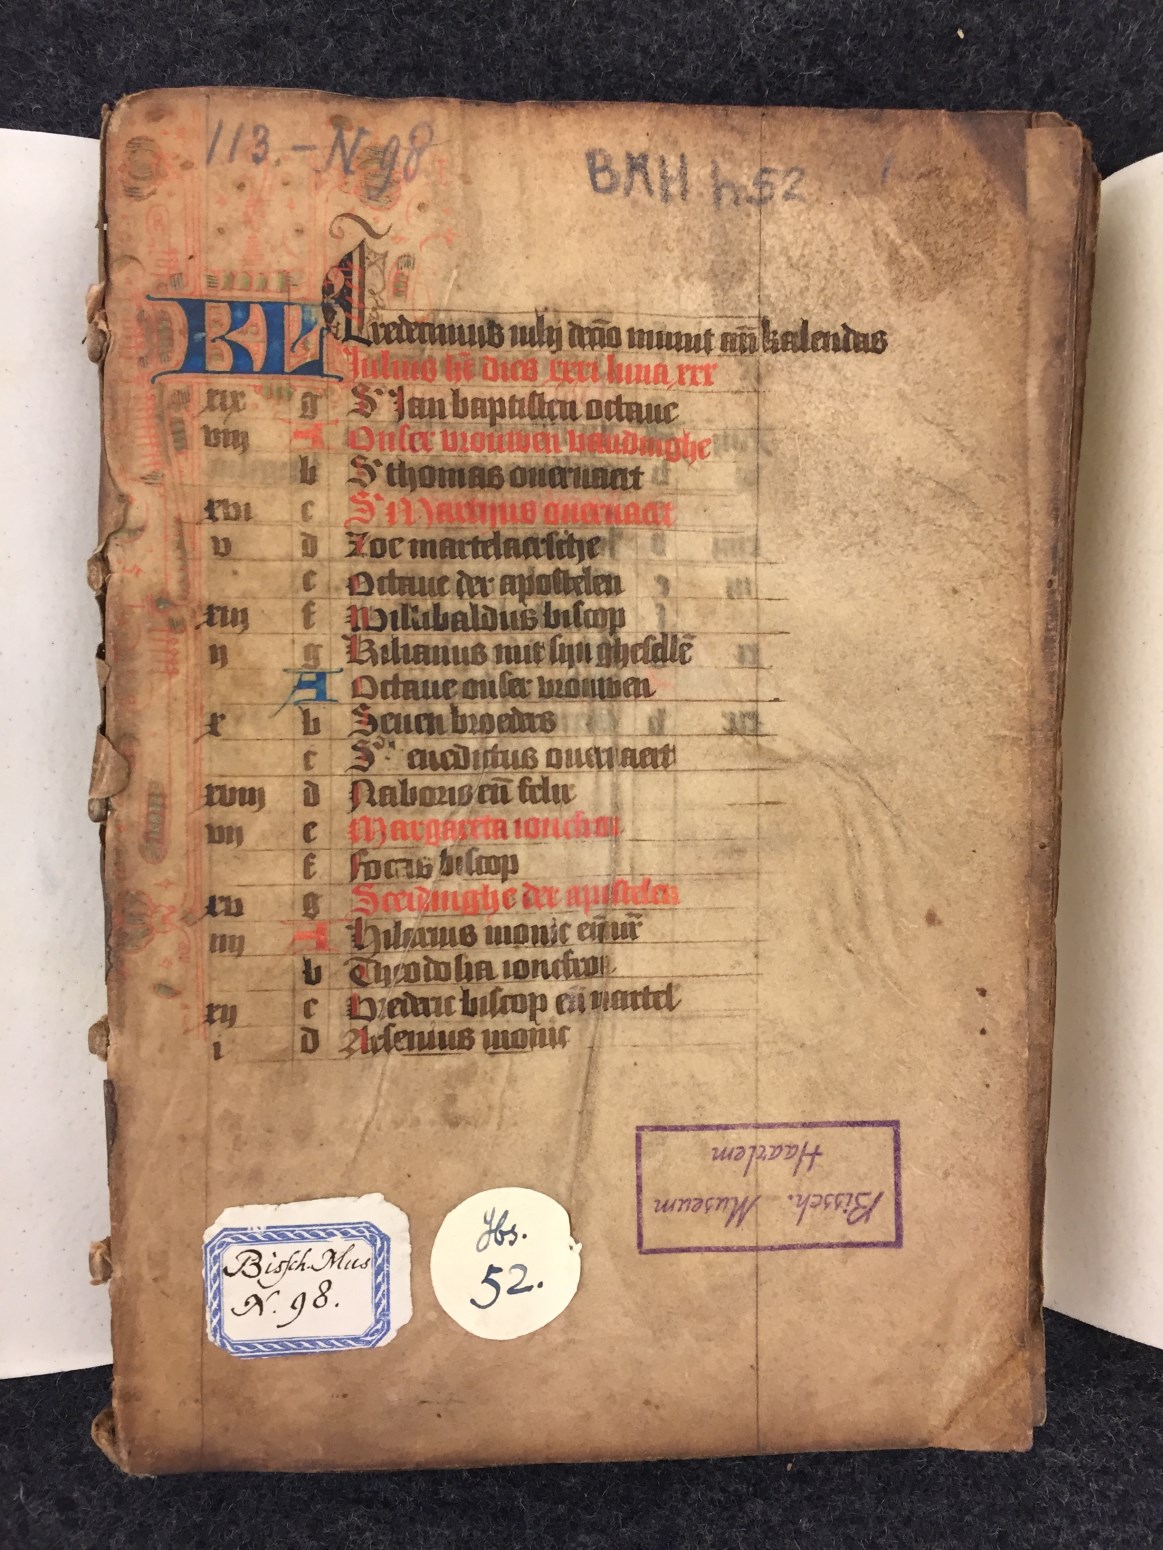 113.-N 98
BMH h52
KL Tredecimus iulij decīo innuit añ kalendas
Julius hē dies xxxi luna xxx
xix g S Jan baptisten octaue
viij A Onser vrouwen vandinghe
b S thomas ouervaert
xvi c S Martijns ouervaert
v d Zoe martelaersche
e Octaue der apostelen
xiij f Willibaldus biscop
ij g Kilianus mit sijn ghesellē
A Octaue onser vrouwen
x b Seuen broeders
c S enedictus ouervaert
xviij d Naboris eñ felix
vij e Margareta ioncfrou
f Focas biscop
xv g Sceidinghe der apostelen
iiij A Hilarius monic eñ mr̄
b Theodosia ioncfrou
xij c Vrederic biscop eñ martel
i d Arsenius monic
Bissch. Museum
Haarlem
Bissch. Mus
N. 98.
Hs.
52.